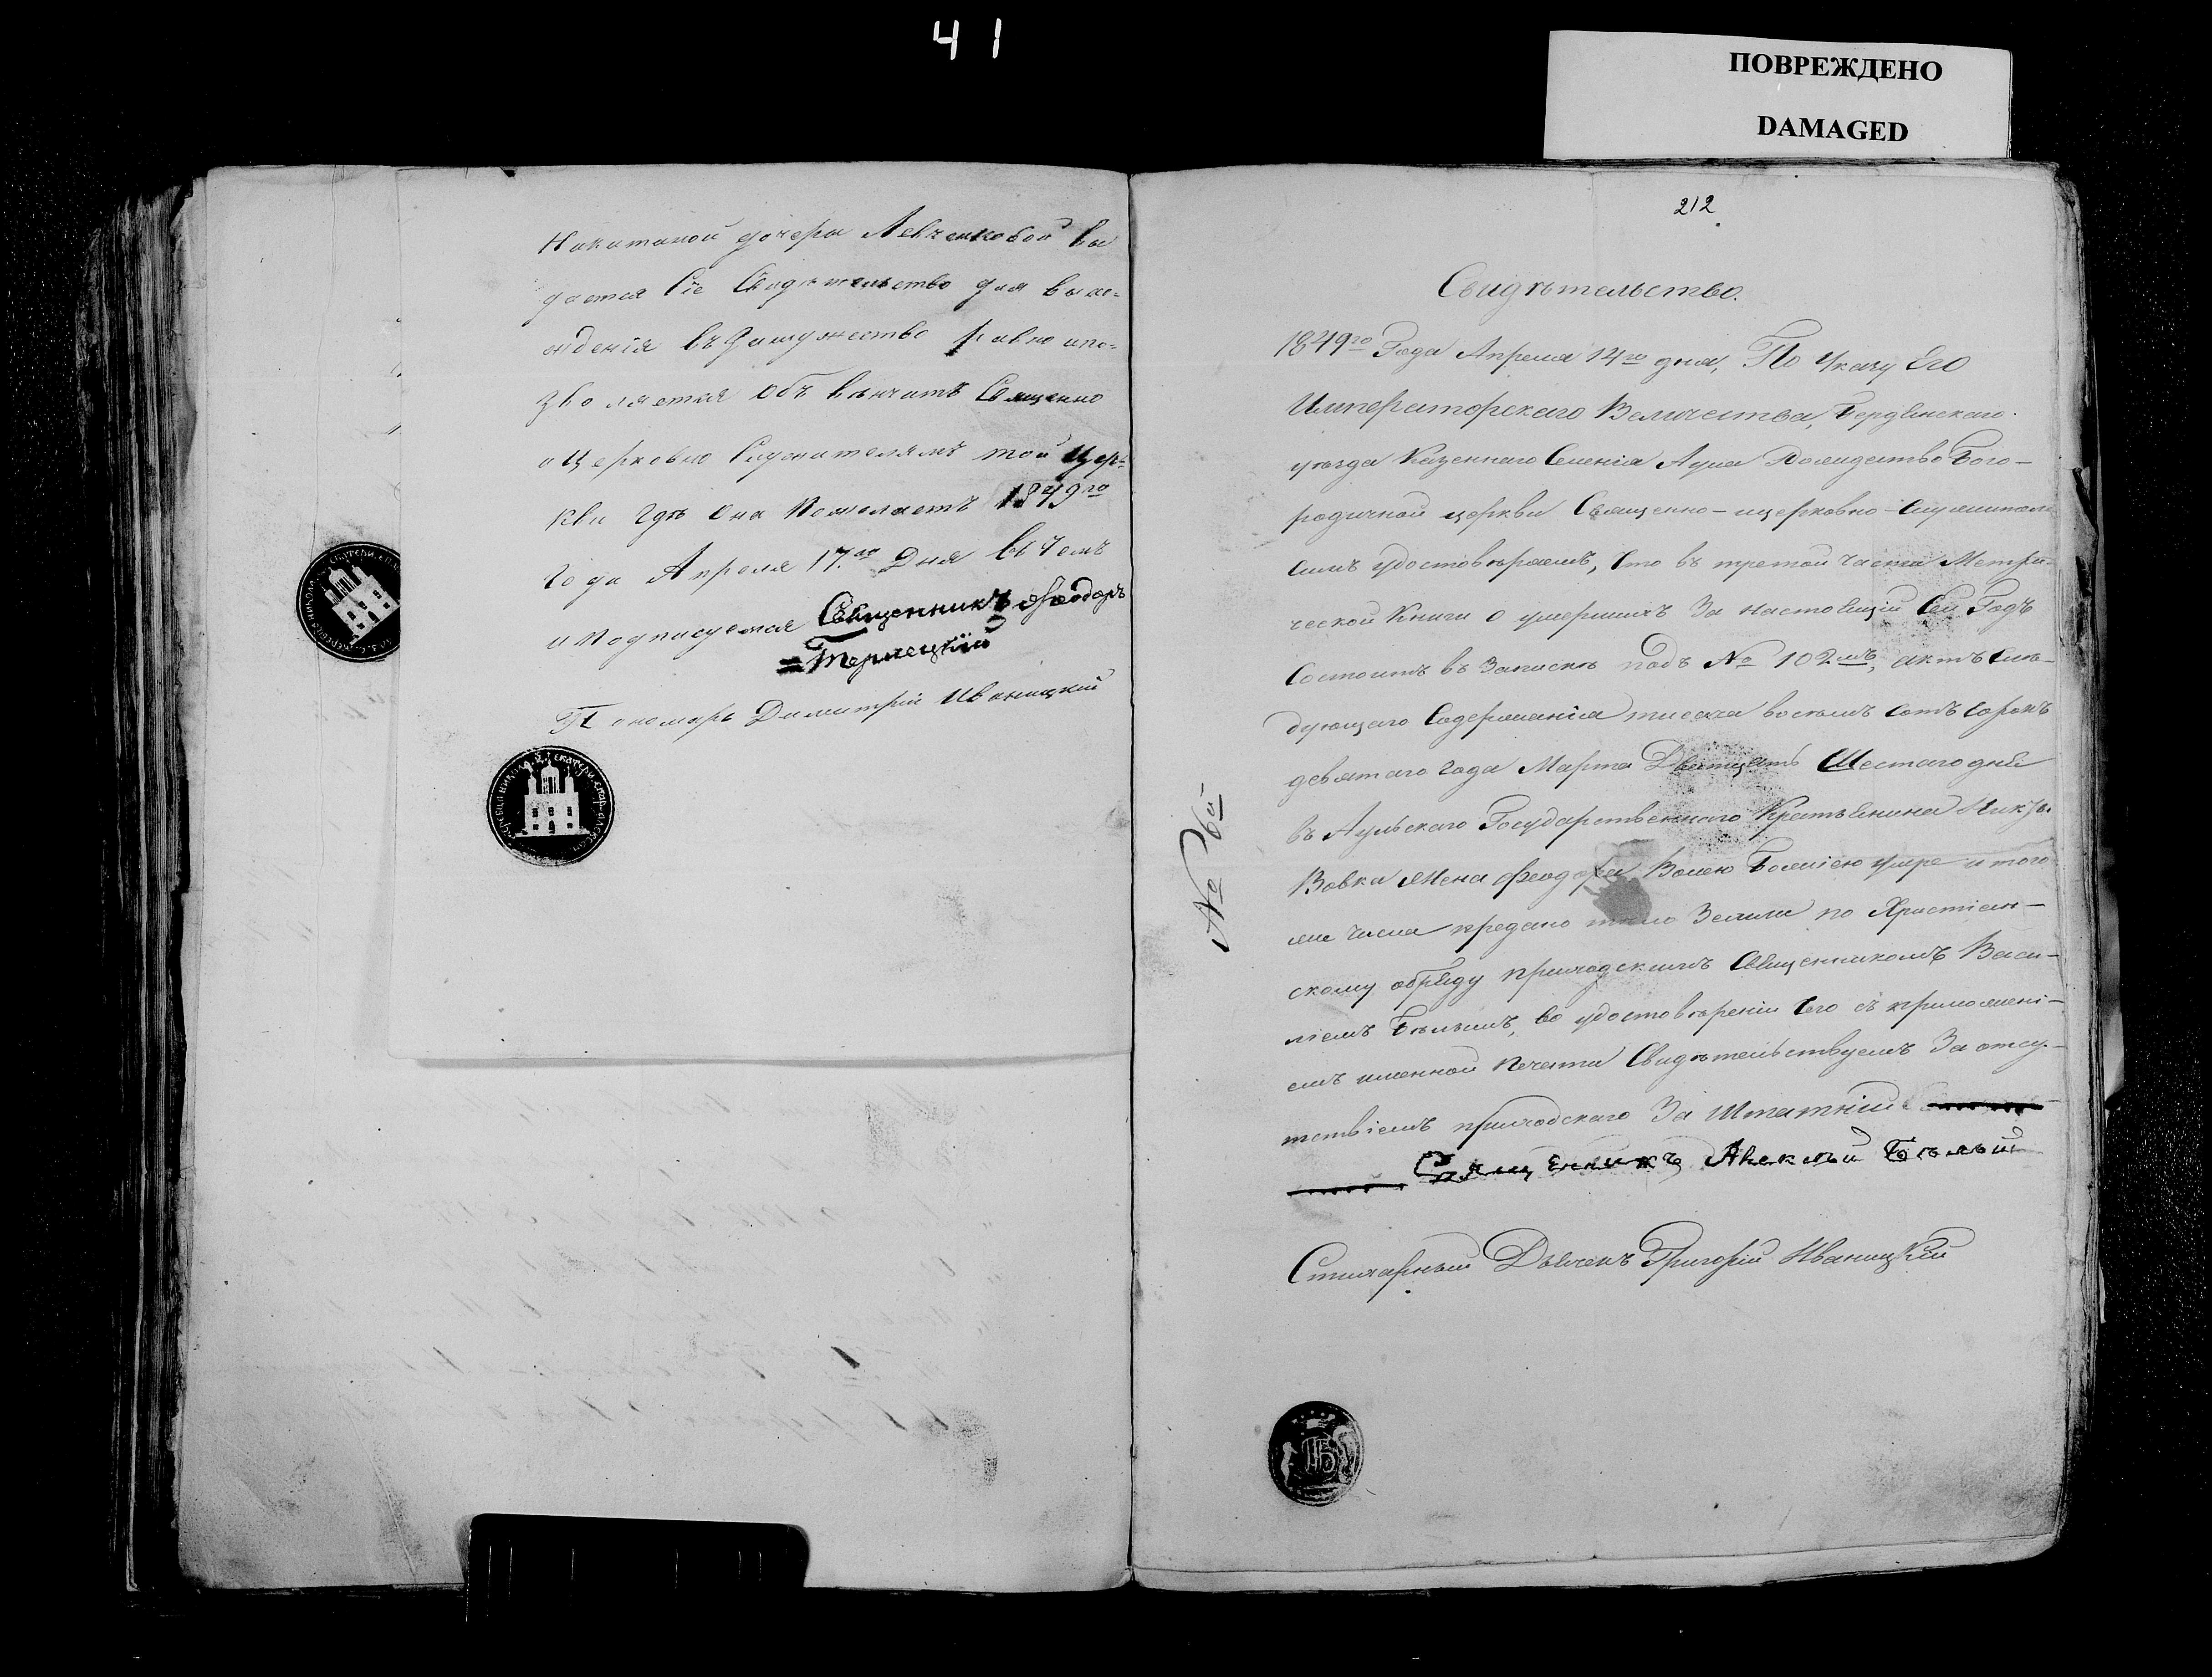 41
ПОВРЕЖДЕНО
DAMAGED
Никитиной дочери Левченковой вы
дается Сіе Свидѣтельство для выхо=
жденія въ Замужество равно и по=
зволяется Объ вѣнчать Священно
и Церковно Служителямъ той Цер=
кви гдѣ Она Пожелаетъ 1849го
Года Апреля 17.го Дня въ Чемъ
и Подписуемся Священникъ Феодоръ
=Терлецкій
Пономарь Димитрій Иваницкій
212
Свидѣтельство.
1849го Года Апреля 14го дня, По Указу Его
Императорскаго Величества, Бердянскаго
уѣзда Казеннаго Селенія Аула Рождество Бого–
родичной церкви Священно–и церковно–служители
симъ удостовѣряемъ, что въ третой части Метри–
ческой Книги о умершихъ За настоящій Сей Годъ
Состоитъ въ Запискѣ подъ № 102мъ, актъ Слѣ–
дующаго Содержанія тисяча восемь сотъ сорокъ
девятаго года Марта Двадцать Шестаго дня
въ Аульскаго Государственного Крестьянина
Вовка Жена Феодора Волею Божіею умре и того
же числа предано тѣло Земли по Христіан–
скому обряду приходскимъ Священникомъ Васи–
ліемъ Бѣлымъ, во удостовѣреніи чего съ приложені–
емъ именной печати Свидѣтельствуемъ За отсу–
тствіемъ приходскаго За Штатній
Священникъ Алексѣй Бѣлый
Стихарный Дьячекъ Григорій Иваницкій
№ 6й
ПБ